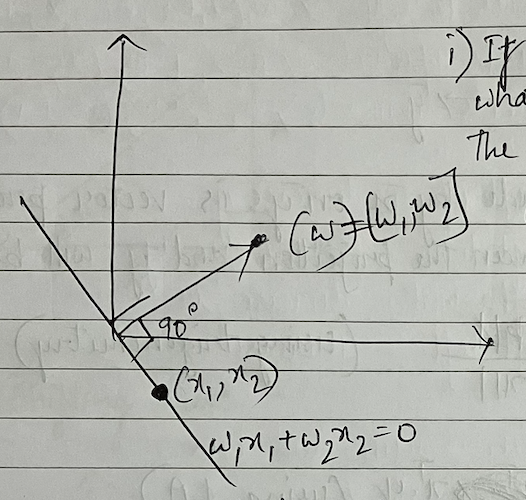 i) If
wha
The
(w)=[w₁,w₂]
90°
(x₁,x₂)
w₁x₁+w₂x₂=0